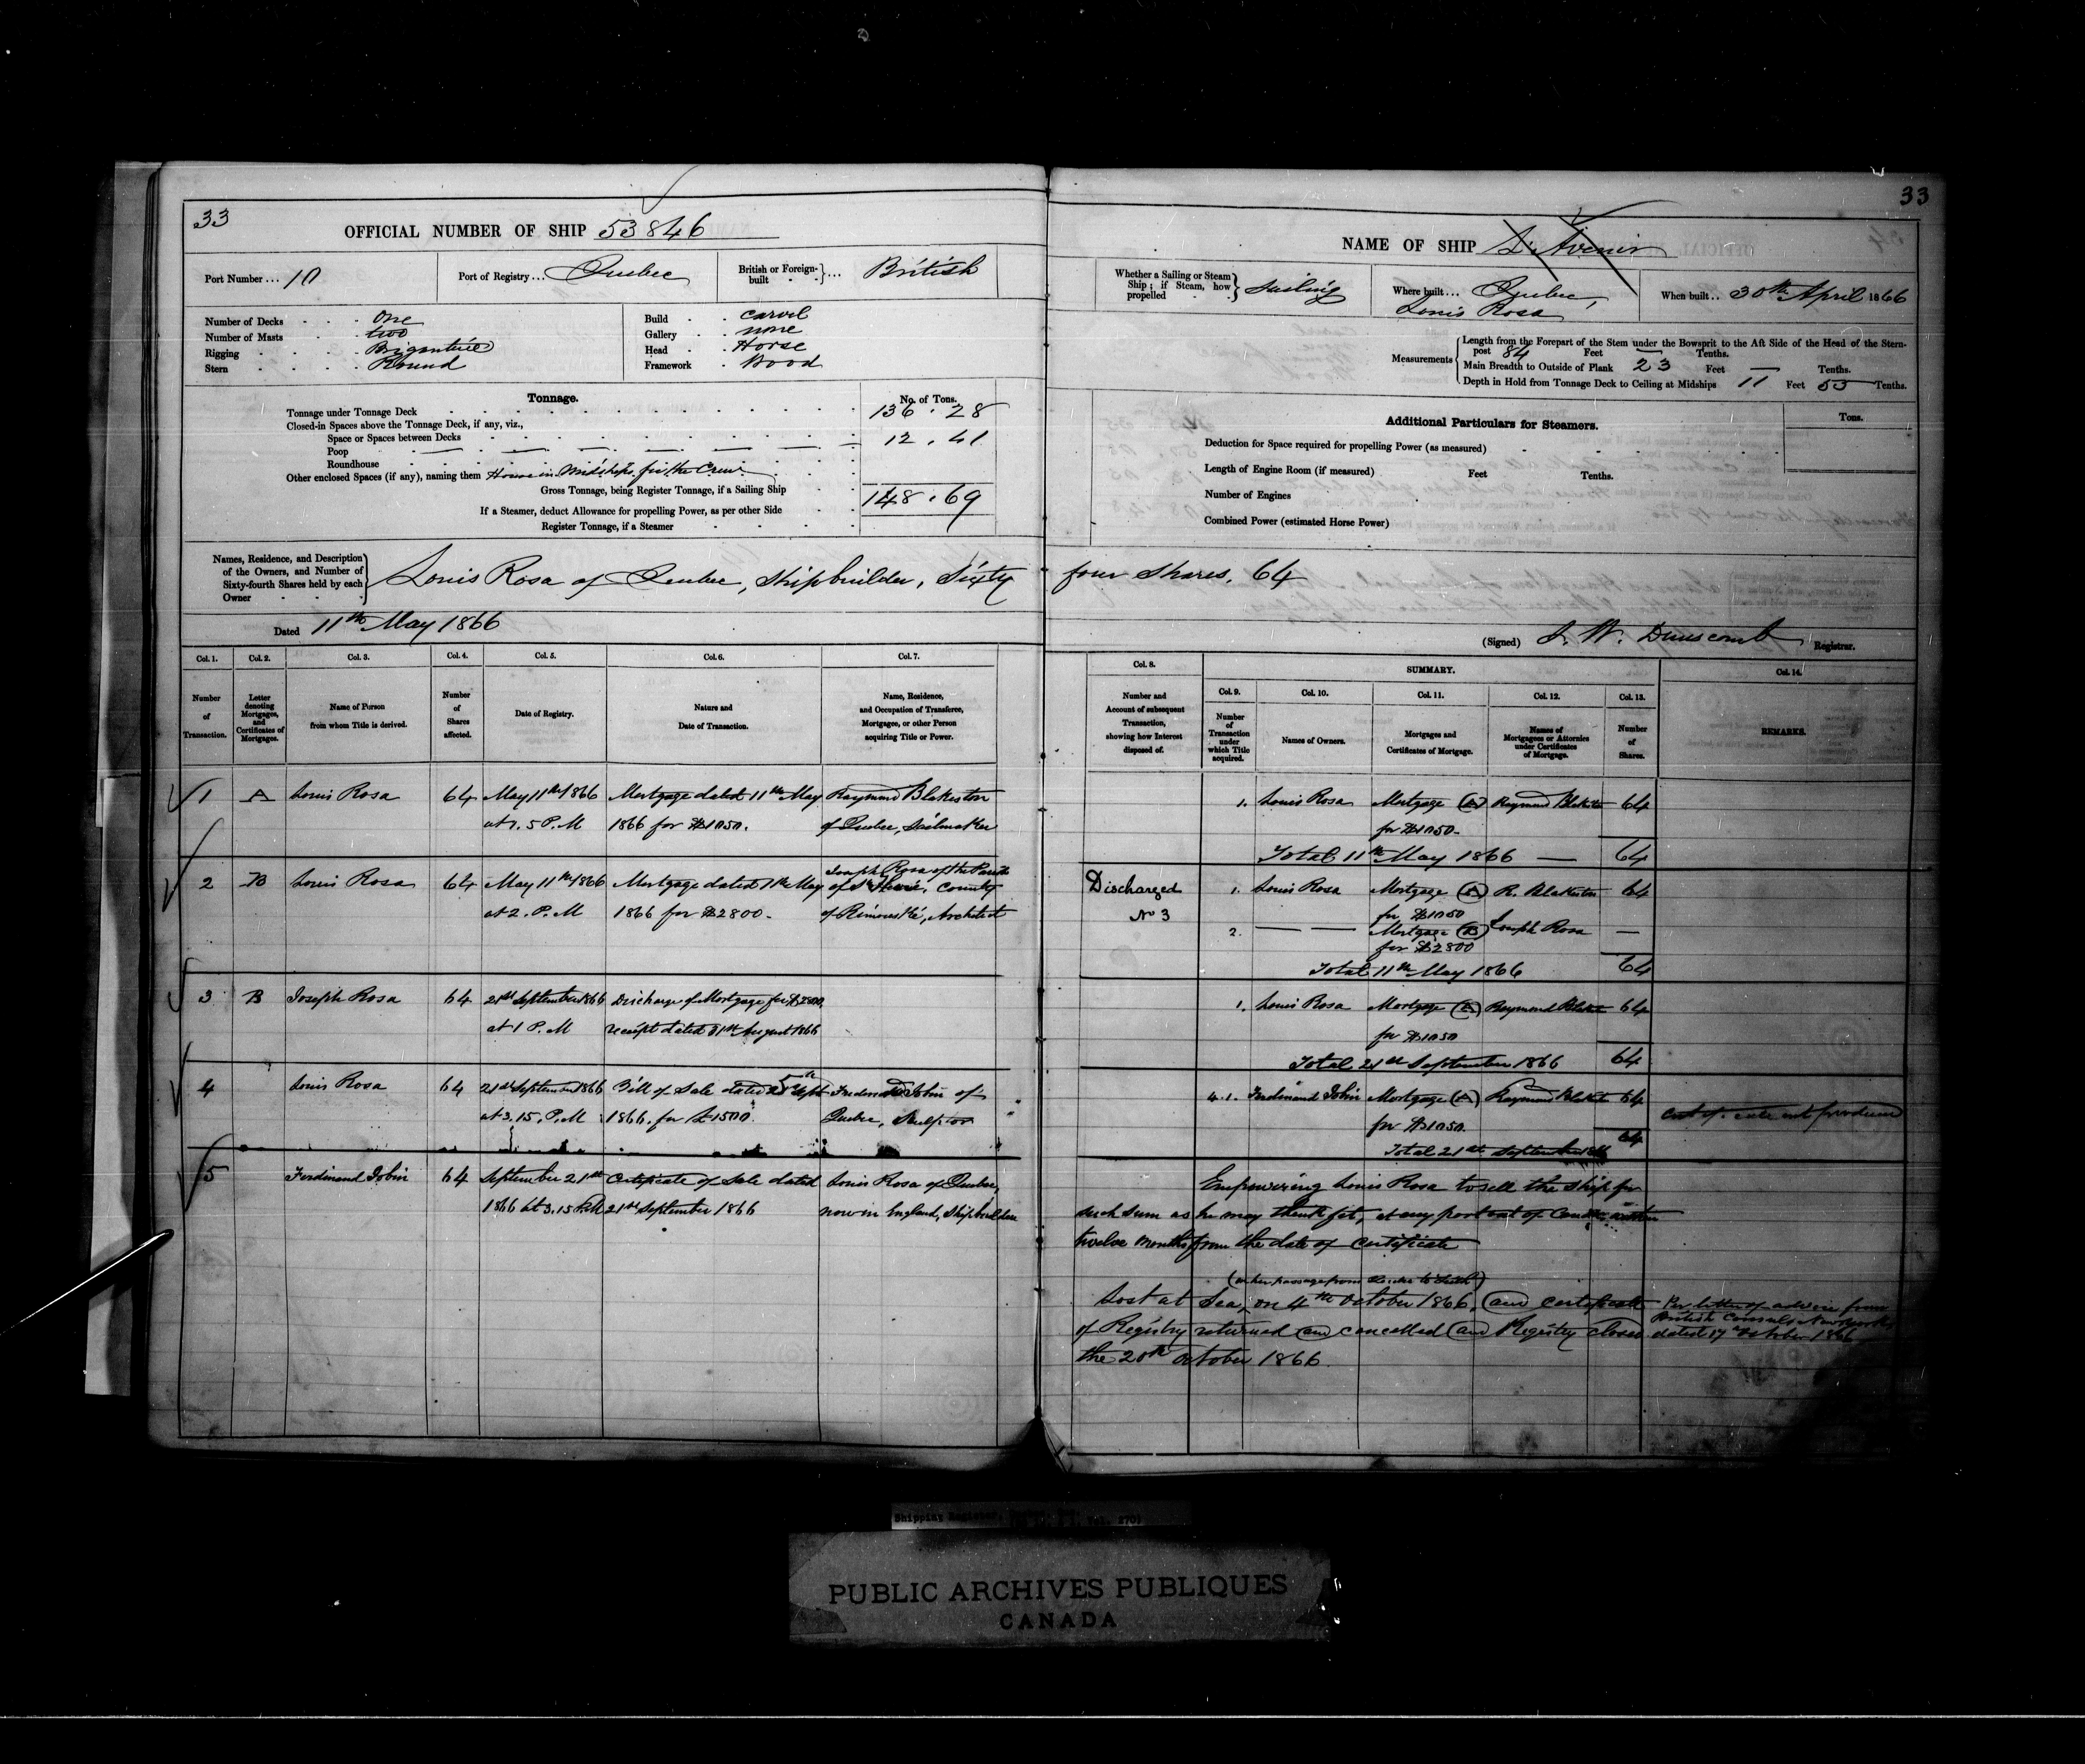 33
OFFICIAL NUMBER OF SHIP 53846
Port Number ... 10
Port of Registry ... Quebec
British or Foreign-built ... British
Number of Decks One
Number of Masts two
Rigging Brigantine
Stern Round
Build carvel
Gallery none
Head Horse
Framework Wood
Tonnage.
No. of Tons.
Tonnage under Tonnage Deck 136.28
Closed-in Spaces above the Tonnage Deck, if any, viz.,
Space or Spaces between Decks 12.41
Poop
Roundhouse
Other enclosed Spaces (if any), naming them House in Midships for the Crew.
Gross Tonnage, being Register Tonnage, if a Sailing Ship 148.69
If a Steamer, deduct Allowance for propelling Power, as per other Side
Register Tonnage, if a Steamer
Names, Residence, and Description of the Owners, and Number of Sixty-fourth Shares held by each Owner
Louis Rosa of Quebec, Shipbuilder, Sixty
Dated 11th May 1866
Col. 1. Col. 2. Col. 3. Col. 4. Col. 5. Col. 6. Col. 7.
Number of Transaction.
Letter denoting Mortgages, and Certificates of Mortgages.
Name of Person from whom Title is derived.
Number of Shares affected.
Date of Registry.
Nature and Date of Transaction.
Name, Residence, and Occupation of Transferee, Mortgagee, or other Person acquiring Title or Power.
1 A Louis Rosa 64 May 11th 1866 Mortgage dated 11th May Raymond Blakiston
P.M 1866 for $1050. of Quebec, Sailmaker
2 B Louis Rosa 64 May 11th 1866 Mortgage dated May Joseph Rosa of the Parish of County
at 2. P.M 1866 for $2800. of Rimouski, Architect
3 B Joseph Rosa 64 21st September 1866 Discharge of Mortgage for $2800
at 1 P.M receipt dated August 1866
4 Louis Rosa 64 21st September 1866 Bill of Sale dated Sept Ferdinand Jobin of
at 3.15. P.M 1866. for £1500. Quebec, Sculptor
5 Ferdinand Jobin 64 September 21st Certificate of Sale dated Louis Rosa of Quebec,
1866 at 3.15 P.M 21st September 1866 now in England, Shipbuilder
33
NAME OF SHIP L'Avenir
Whether a Sailing or Steam Ship; if Steam, how propelled Sailing
Where built ... Quebec,
Louis Rosa
When built .. 30th April 1866
Measurements
Length from the Forepart of the Stem under the Bowsprit to the Aft Side of the Head of the Stern-
post 84 Feet — Tenths.
Main Breadth to Outside of Plank 23 Feet — Tenths.
Depth in Hold from Tonnage Deck to Ceiling at Midships 11 Feet 53 Tenths.
Additional Particulars for Steamers.
Tons.
Deduction for Space required for propelling Power (as measured)
Length of Engine Room (if measured) Feet Tenths.
Number of Engines
Combined Power (estimated Horse Power)
four Shares. 64
(Signed) J. W. Dunscomb Registrar.
Col. 8.
Number and Account of subsequent Transaction, showing how Interest disposed of.
SUMMARY.
Col. 9. Col. 10. Col. 11. Col. 12. Col. 13. Col. 14.
Number of Transaction under which Title acquired.
Names of Owners.
Mortgages and Certificates of Mortgage.
Names of Mortgagees or Attornies under Certificates of Mortgage.
Number of Shares.
REMARKS.
1. Louis Rosa Mortgage (A) Raymond Blakiston 64
for $1050.
Total 11th May 1866 — 64
Discharged 1. Louis Rosa Mortgage (A) R. Blakiston 64
No 3 for $1050
2. — — Mortgage (B) Joseph Rosa —
for $2800
Total 11th May 1866 64
1. Louis Rosa Mortgage (A) Raymond Blakiston 64
for $1050
Total 21st September 1866 64
4.1. Ferdinand Jobin Mortgage (A) Raymond Blakiston 64
Cert of. sale not produced
for $1050.
Total 21st September 1866 64
Empowering Louis Rosa to sell the Ship for
such sum as he may think fit, at any port out of Canada within
twelve Months from the date of certificate
(on her passage from to )
Lost at Sea, on 4th October 1866, and certificate
of Registry returned and cancelled and Registry closed
the 20th October 1866.
Per letter of advice from
British Consul New York
dated 17 October 1866
Shipping Register,
PUBLIC ARCHIVES PUBLIQUES
CANADA